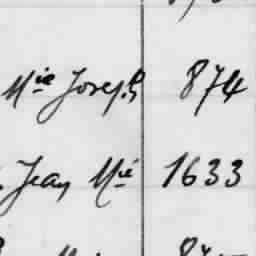 Mie Joseph 874
Jean Mie 1633